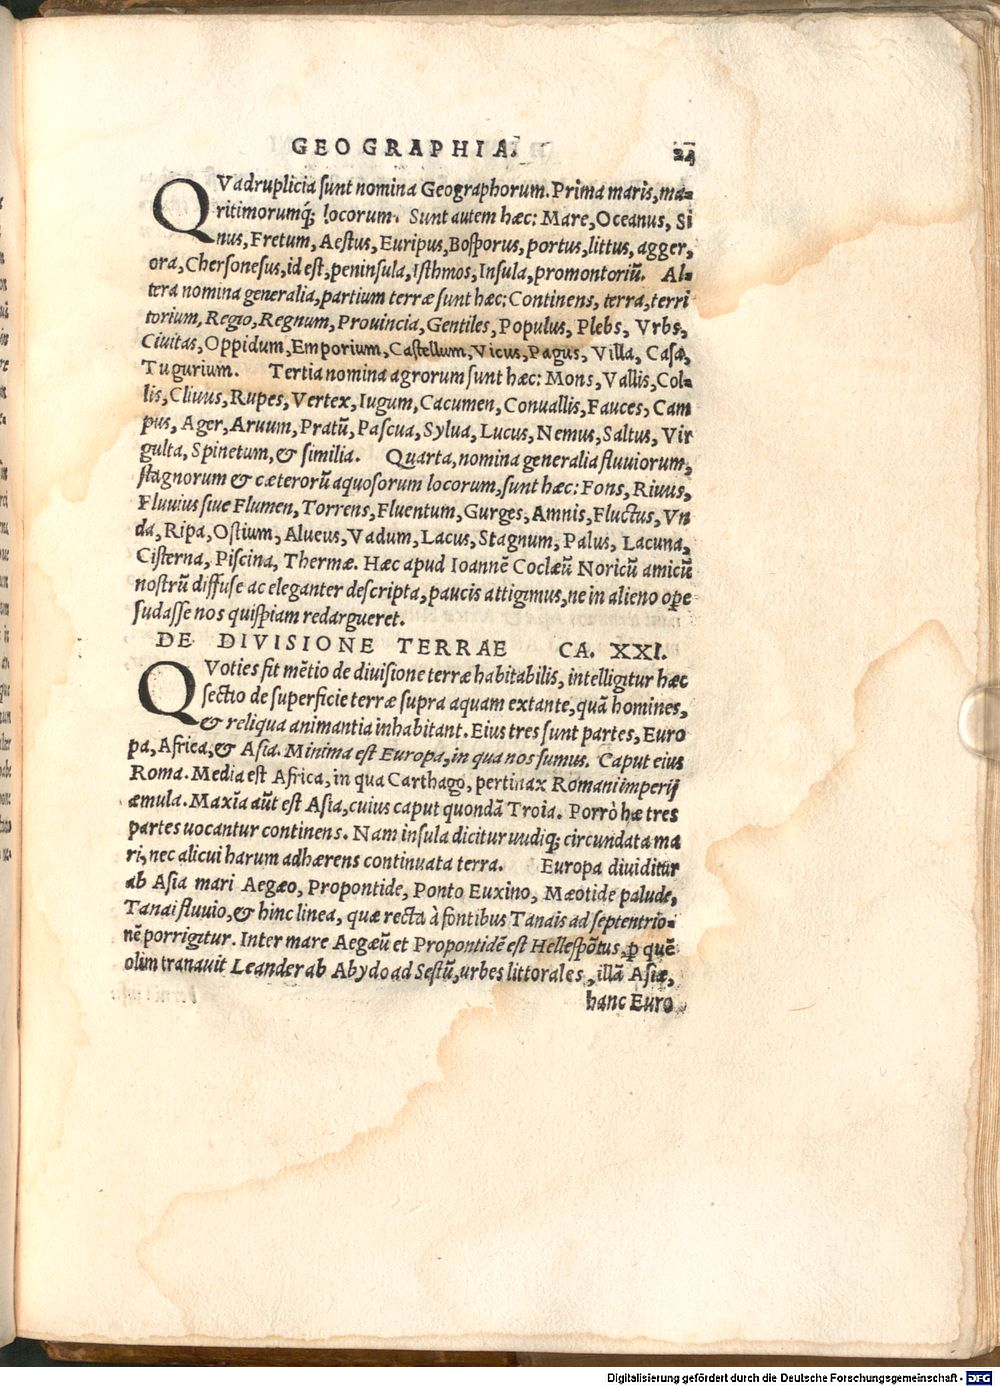 GEOGRAPHIA. 24
QVadruplicia sunt nomina Geographorum. Prima maris, ma-
ritimorumq; locorum. Sunt autem hæc: Mare, Oceanus, Si
nus, Fretum, Aestus, Euripus, Bosporus, portus, littus, agger,
ora, Chersonesus, id est, peninsula, Isthmos, Insula, promontoriũ. Al-
tera nomina generalia, partium terræ sunt hæc: Continens, terra, terri
torium, Regio, Regnum, Prouincia, Gentiles, Populus, Plebs, Vrbs,
Ciuitas, Oppidum, Emporium, Castellum, Vicus, Pagus, Villa, Casa,
Tugurium. Tertia nomina agrorum sunt hæc: Mons, Vallis, Col-
lis, Cliuus, Rupes, Vertex, Iugum, Cacumen, Conuallis, Fauces, Cam
pus, Ager, Aruum, Pratũ, Pascua, Sylua, Lucus, Nemus, Saltus, Vir
gulta, Spinetum, & similia. Quarta, nomina generalia fluuiorum,
stagnorum & cæterorũ aquosorum locorum, sunt hæc: Fons, Riuus,
Fluuius siue Flumen, Torrens, Fluentum, Gurges, Amnis, Fluctus, Vn
da, Ripa, Ostium, Alueus, Vadum, Lacus, Stagnum, Palus, Lacuna,
Cisterna, Piscina, Thermæ. Hæc apud Ioannẽ Coclæũ Noricũ amicũ
nostrũ diffuse ac eleganter descripta, paucis attigimus, ne in alieno ope
sudasse nos quispiam redargueret.
DE DIVISIONE TERRAE CA. XXI.
QVoties fit mẽtio de diuisione terræ habitabilis, intelligitur hæc
sectio de superficie terræ supra aquam extante, quã homines,
& reliqua animantia inhabitant. Eius tres sunt partes, Euro
pa, Africa, & Asia. Minima est Europa, in qua nos sumus. Caput eius
Roma. Media est Africa, in qua Carthago, pertinax Romani imperij
æmula. Maxĩa aũt est Asia, cuius caput quondã Troia. Porrò hæ tres
partes uocantur continens. Nam insula dicitur uudiq; circundata ma
ri, nec alicui harum adhærens continuata terra. Europa diuiditur
ab Asia mari Aegæo, Propontide, Ponto Euxino, Mæotide palude,
Tanai fluuio, & hinc linea, quæ recta à fontibus Tanais ad septentrio-
nẽ porrigitur. Inter mare Aegæũ et Propontidẽ est Hellespõtus, ꝑ quẽ
olim tranauit Leander ab Abydo ad Sestũ, urbes littorales, illã Asiæ,
hanc Euro
Digitalisierung gefördert durch die Deutsche Forschungsgemeinschaft - DFG